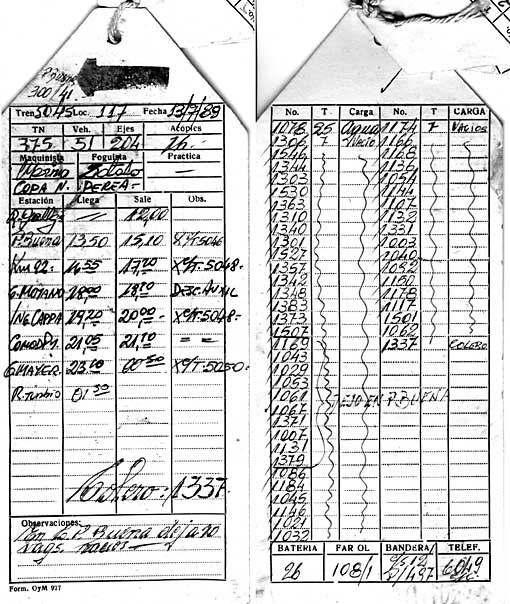 P. Buena
300/41.
Tren 5045 Loc. 117 Fecha 13/7/89
TN Veh. Ejes Acoples
375 51 204 26.-
Maquinista Foguista Practica
COPA N. PEREA.- —
Estación Llega Sale Obs.
— 12,00
P. Buena 13.50 15.10 X c/T. 5046
Km 92.- 16.55 17,20 X c/T. 5048.-
G. MOYANO 18.00 18,10 DESC. AUXIL
ING. CAPPA 19,20 20.00.- X c/T. 5048.-
COMOD. PY. 21.05 21,10 = =
G. MAYER.- 23.40 00.50 X c/T. 5050.-
R. Turbio 01.30
Colero: 1337.-
Observaciones:
En E. P. Buena dejaro
vags. vacios —
Form. OyM 977
No. T. Carga No. T CARGA
1078 55 Agua 1174 7 Vacios
1306 7 Vacio 1166
1546 1168
1344 1153
1303 1054
1530 1144
1363 1107
1310 1132
1340 1331
1301 1003
1527 1040
1357 1052
1342 1150
1348 1178
1383 1117
1373 1501
1507 1062
1169 1337 COLERO
1043
1029
1053
1061 DEJO EN P. BUENA
1067
1371
1007
1131
1379
1086
1184
1045
1146
1021
1032
BATERIA FAROL BANDERA TELEF.
26 108/1 6049